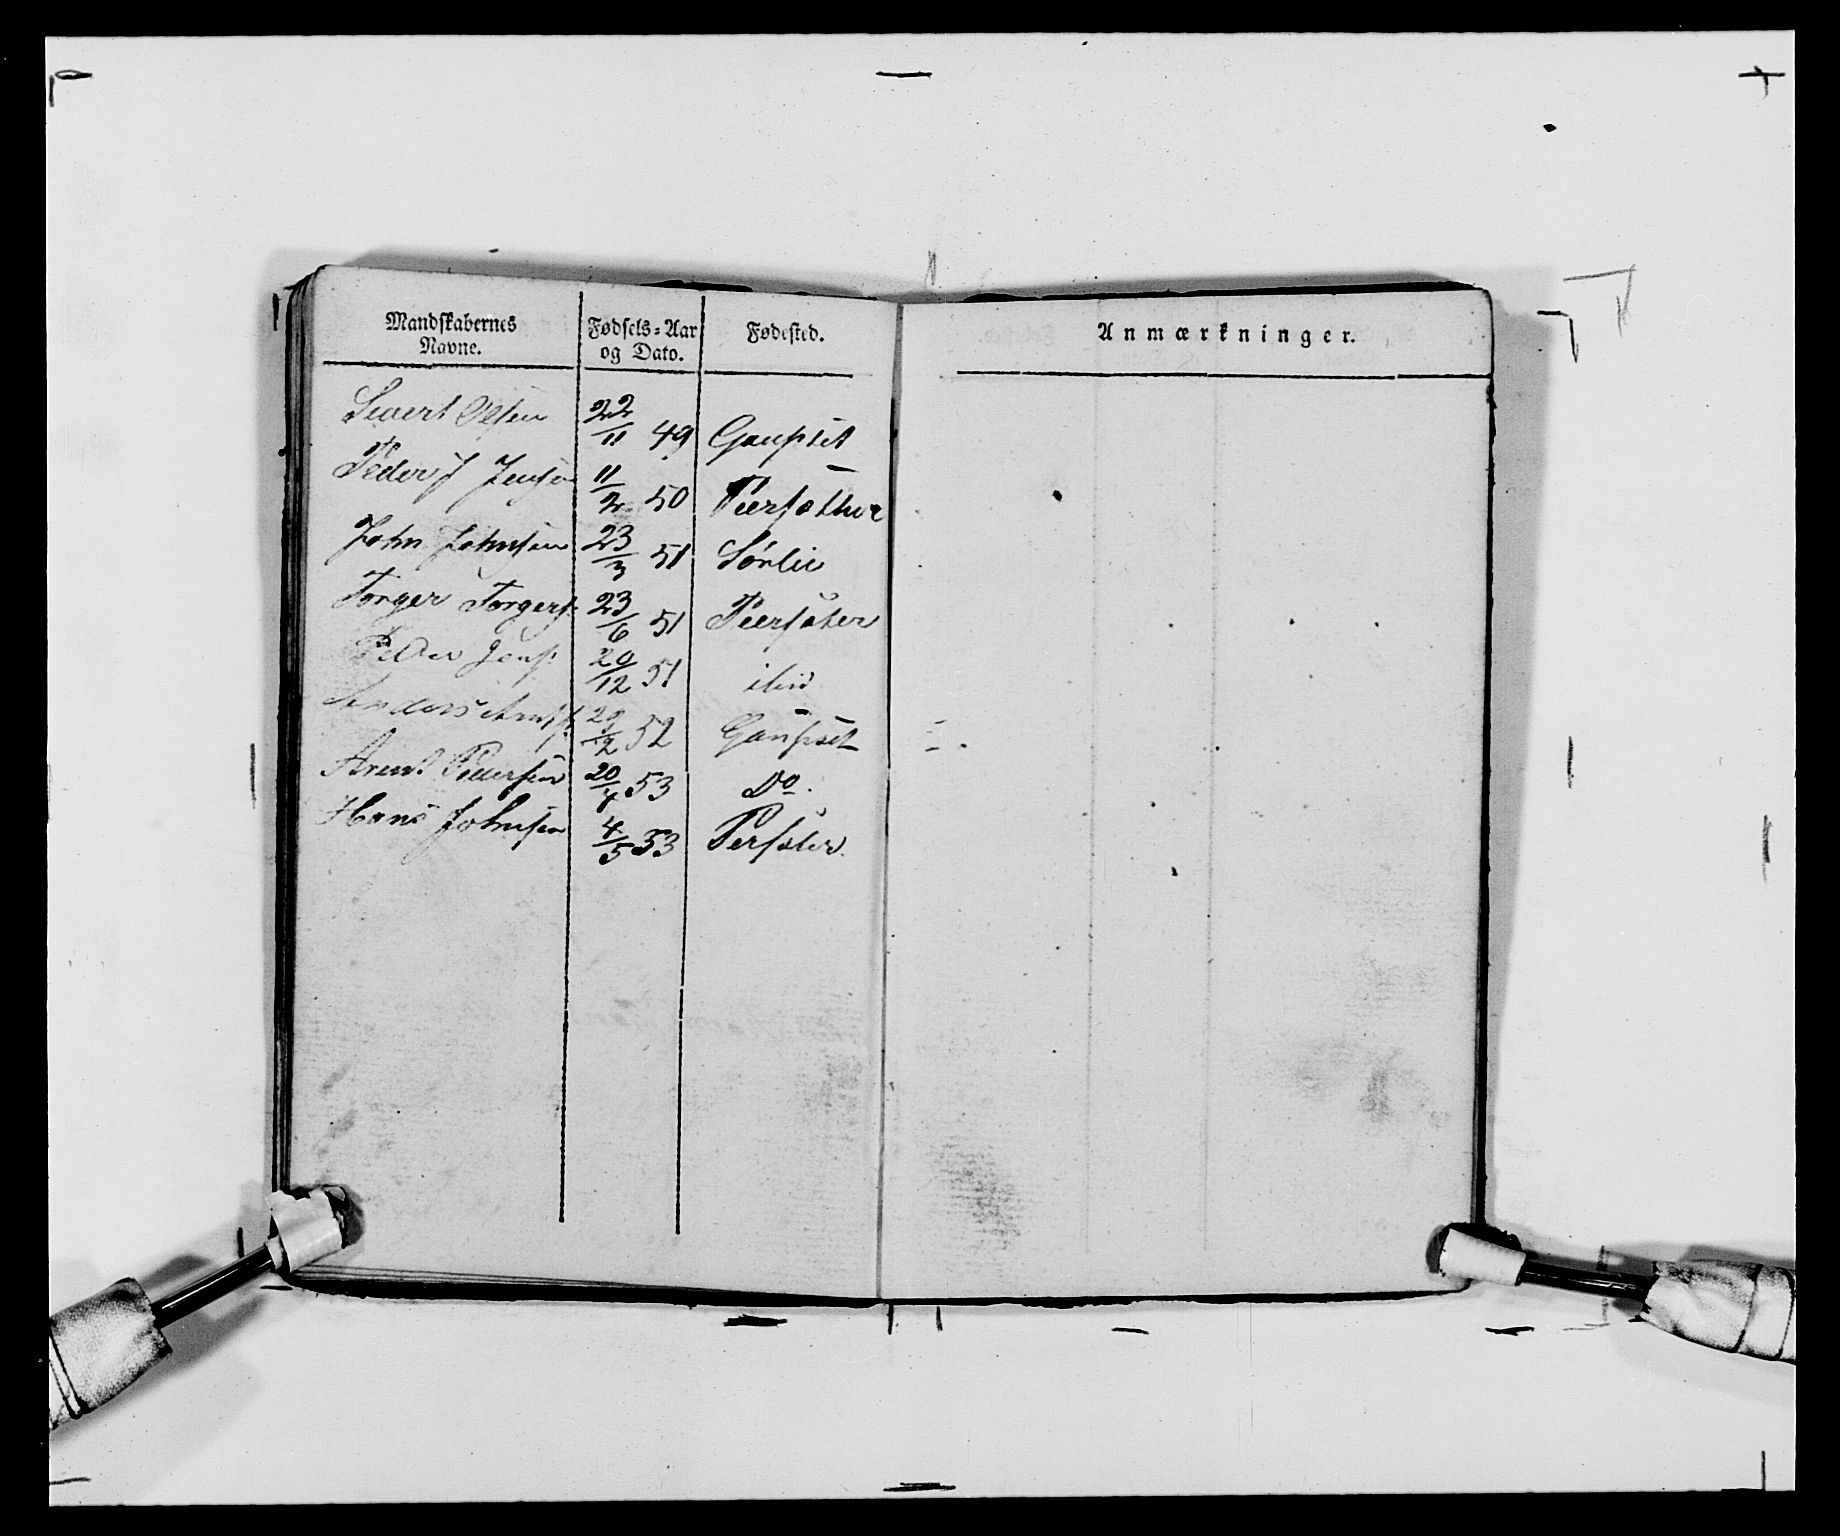 Mandskabernes Navne.
Fødsels-Aar og Dato.
Fødested.
Anmærkninger.
Sivert Olsen 22/11 49 Gaupset
Peder J Jensen 11/2 50 Peersæther
John Johnsen 23/3 51 Sørlie
Torger Torgers. 23/6 51 Peersæter
Peder Jens. 20/12 51 ibid
Anders 29/2 52 Gaupset
Arent Pedersen 20/4 53 Do.
Hans Johnsen 4/5 53 Persæter.